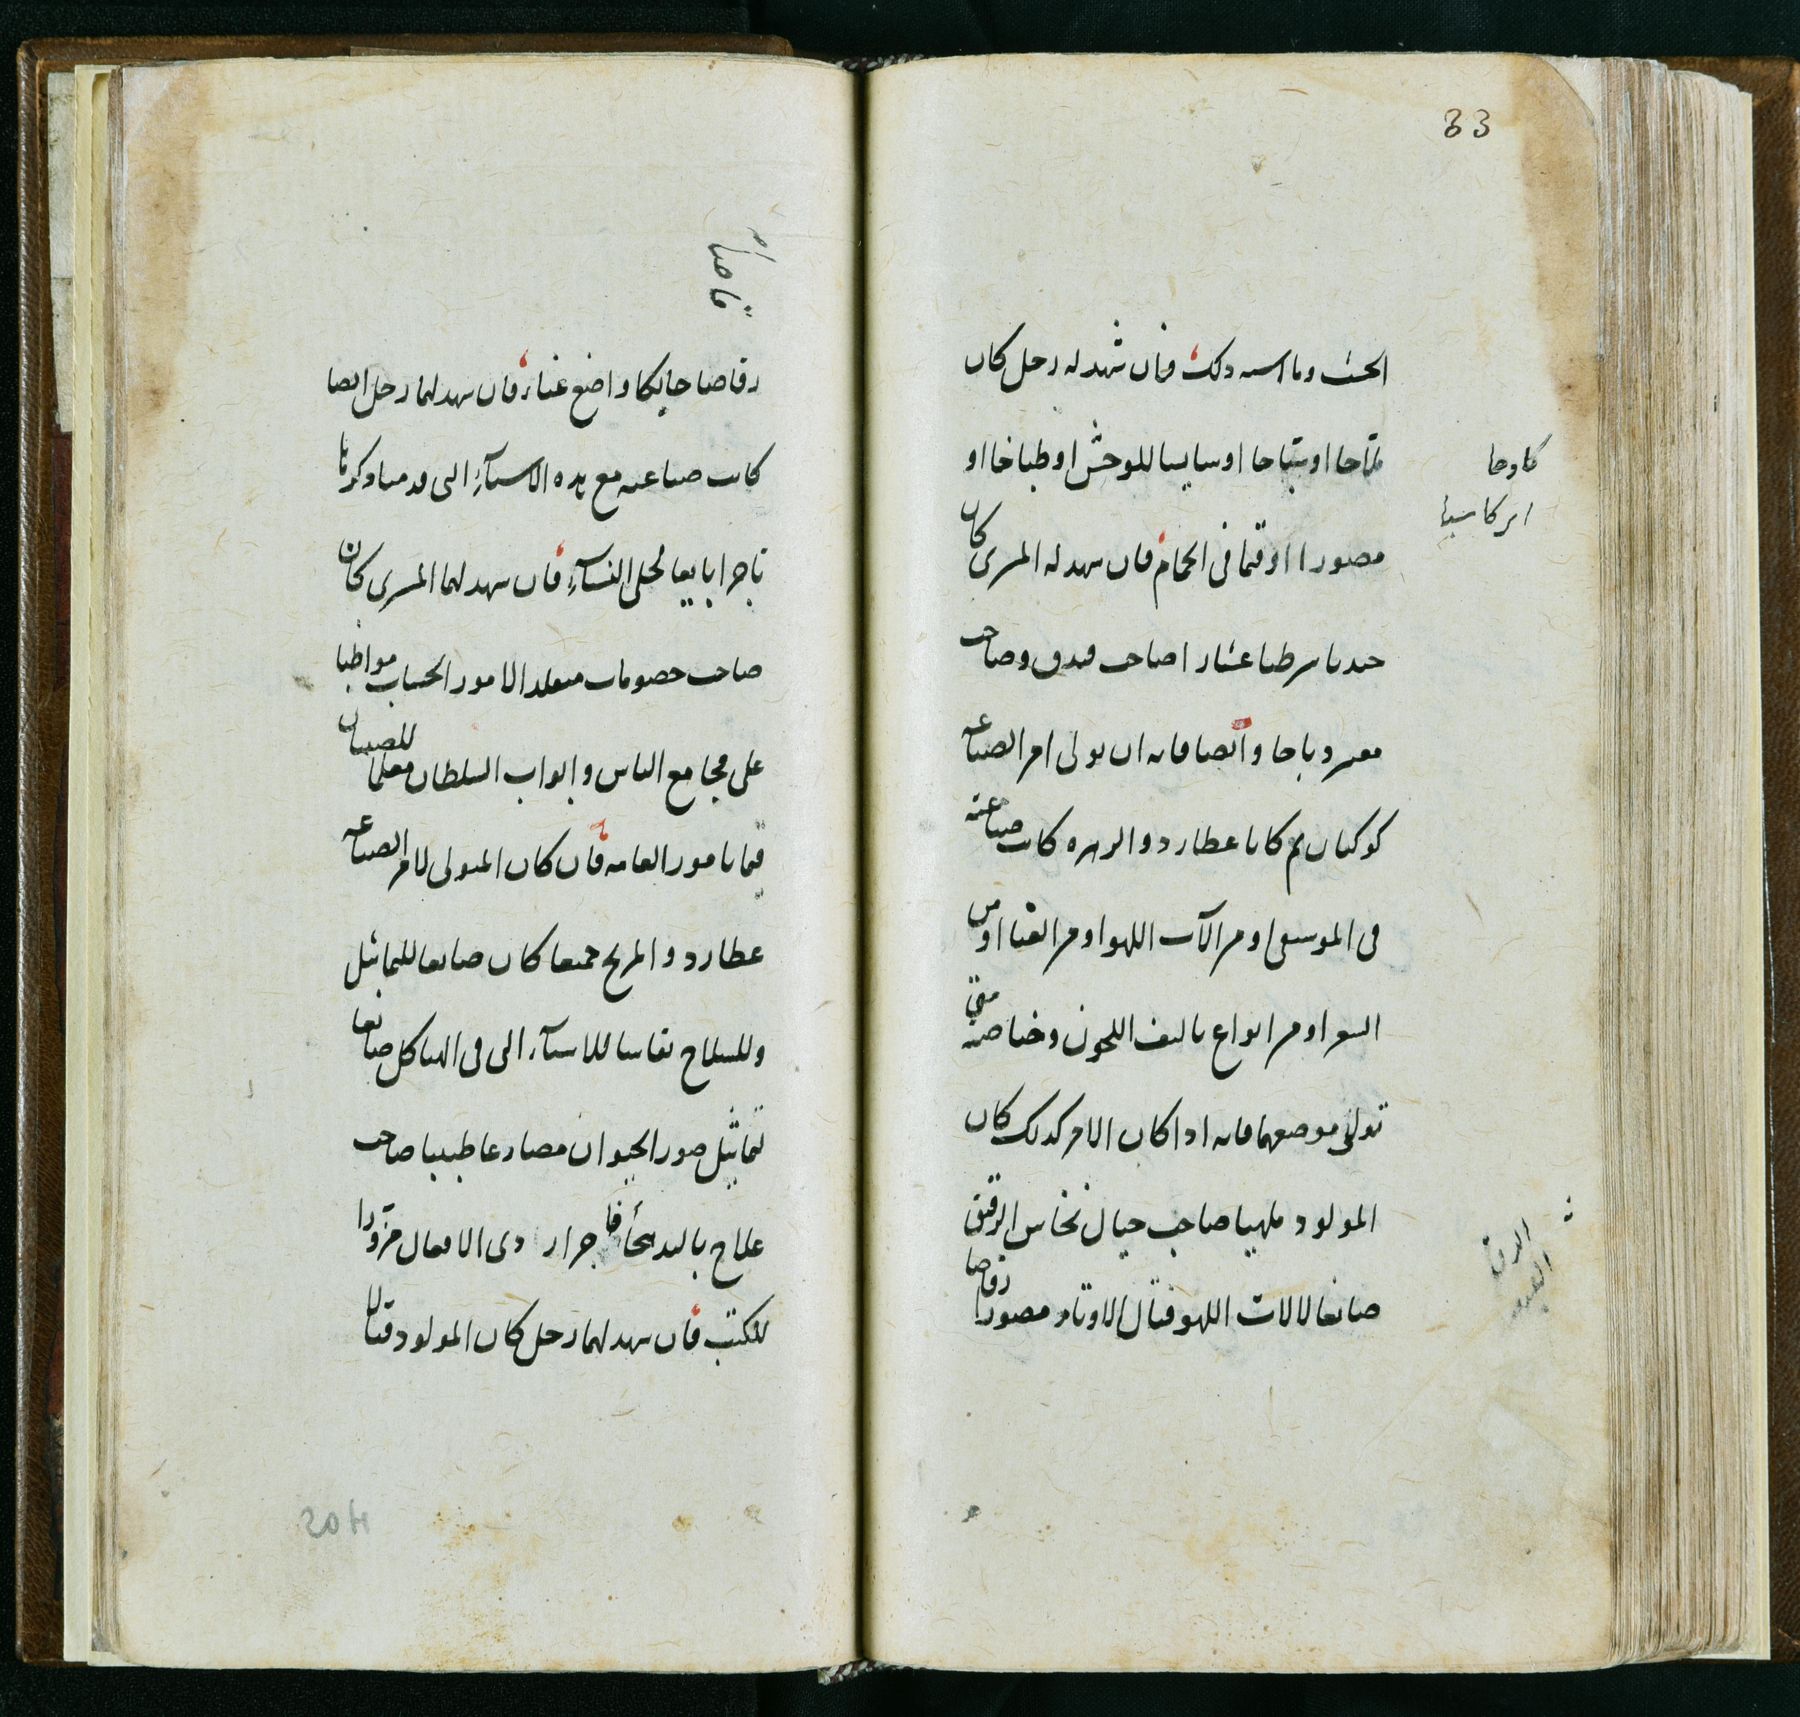 33
الخشب وما اسبه ذلك فان شهد له رجل كان
ملاحا او سباحا او سايسا للوحش او طباخا او
مصورا او قيما فى الحمام فان سهد له المسرى كان
صاحب فندق وصاحب
معبر وباجا وايضا فانه ان تولى امر الصناعه
كوكبان ثم كانا عطارد والزهره كانت صناعته
فى الموسيقى او من الآت اللهو او من الغنا او من
السعر او من انواع تاليف اللحون وخاصته متى
تولى موضعهما فانه اذا كان الامر كذلك كان
المولود ملهيا صاحب خيال نخاس الرقيق
صانعا لالات اللهو فتال الاوتار مصورا رقاصا
الرقيق
رقاصا حايكا واضع غناء فان سهد لهما رجل ايضا
كانت صناعته مع هذه الاسيآء التى قدمنا ذكرنا
تاجرا بايعا لحلى النسآء فان سهد لهما المسرى كان
صاحب خصومات متقلد الامور الحساب مواظبا
على مجامع الناس وابواب السلطان معلما للصبيان
قيما بامور العامه فان كان المتولى لامر الصناعه
عطارد والمريخ جميعا كان صانعا للتماثيل
وللسلاح نقاسا للاسيآء التى فى الهياكل صانعا
لتماثيل صور الحيوان مصارعا طبيبا صاحب
علاج باليد دى الافعال مزورا
للكتب فان سهد لهما رجل كان المولود قتالا
204